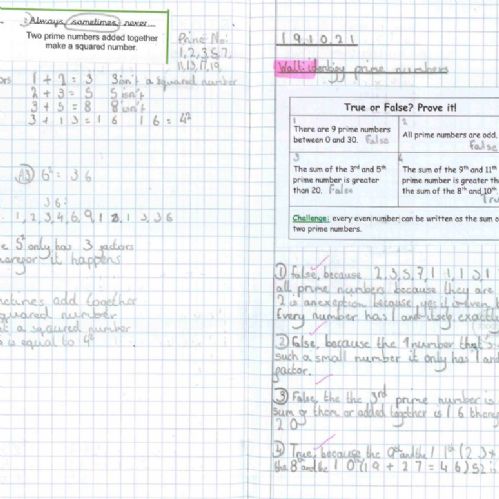 Always, sometimes, never...
Two prime numbers added together
make a squared number.
Prime No:
1, 2, 3, 5, 7,
11, 13, 17, 19
1 + 2 = 3 3 isn't a squared number
2 + 3 = 5 5 isn't
3 + 5 = 8 8 isn't
3 + 13 = 16 16 = 4²
6² = 36
36:
1, 2, 3, 4, 6, 9, 1 2, 1 3, 36
5² only has 3 factors
it happens
add together
squared number
a squared number
is equal to 4²
19.10.21
Wall: identify prime numbers
True or False? Prove it!
1
There are 9 prime numbers
between 0 and 30. False
2
All prime numbers are odd.
False
3
The sum of the 3rd and 5th
prime number is greater
than 20. False
4
The sum of the 9th and 11th
prime number is greater th
the sum of the 8th and 10th.
Tru
Challenge: every even number can be written as the sum o
two prime numbers.
① false, because 2, 3, 5, 7, 11, 13, 1
all prime numbers because they are
2 is an exception because, yes it even, b
Every number has 1 and itself, exactly
② False, because the number that's
such a small number it only has 1 and
factor.
③ False, the the 3rd prime number is
sum of them or added together is 16 than
20
④ True, because the 9th and the 11th (23 +
the 8th and the 10th (19 + 27 = 46) 52 is